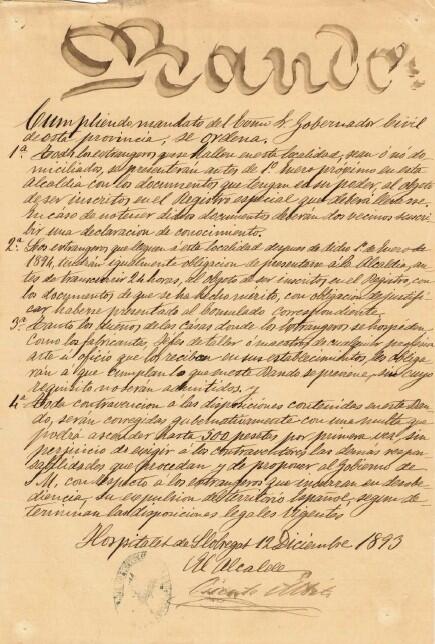 Bando.
Cumpliendo mandato del Excmo Sr. Gobernador Civil
de esta provincia, se ordena.
1ª Todos los extrangeros que se hallen en esta localidad, sean ó nó do-
miciliados, se presentarán antes de 1º Enero próximo en esta
Alcaldia con los documentos que tengan en su poder, al objeto
de ser inscritos en el Registro especial que deberá llevarse.
En caso de no tener dichos documentos deberán dos vecinos suscri-
bir una declaracion de conocimiento.
2ª Los extrangeros que lleguen á esta localidad despues de dicho 1º de Enero de
1894, tendrán igualmente obligacion de presentarse á la Alcaldia, an-
tes de transcurrir 24 horas, al objeto de ser inscritos en el Registro, con
los documentos de que se ha hecho mérito, con obligacion de justifi-
car haberse presentado al Consulado correspondiente.
3ª Tanto los dueños de las casas donde los extrangeros se hospeden,
como los fabricantes, Gefes de taller ó maestros de cualquier profesion
arte ú oficio que los reciban en sus establecimientos, les obliga-
rán á que cumplan lo que en este Bando se previene, sin cuyo
requisito no serán admitidos. y
4ª Toda contravencion á las disposiciones contenidas en este Ban-
do, serán corregidas gubernativamente con una multa que
podrá ascender hasta 500 pesetas por primera vez, sin
perjuicio de exigir á los contraventores las demás respon-
sabilidades que procedan y de proponer al Gobierno de
S. M. con respecto á los extrangeros que incurran en desobe-
diencia, su expulsion de territorio Español, segun de-
terminan las disposiciones legales vigentes
Hospitalet de Llobregat 12 Diciembre 1893
El Alcalde